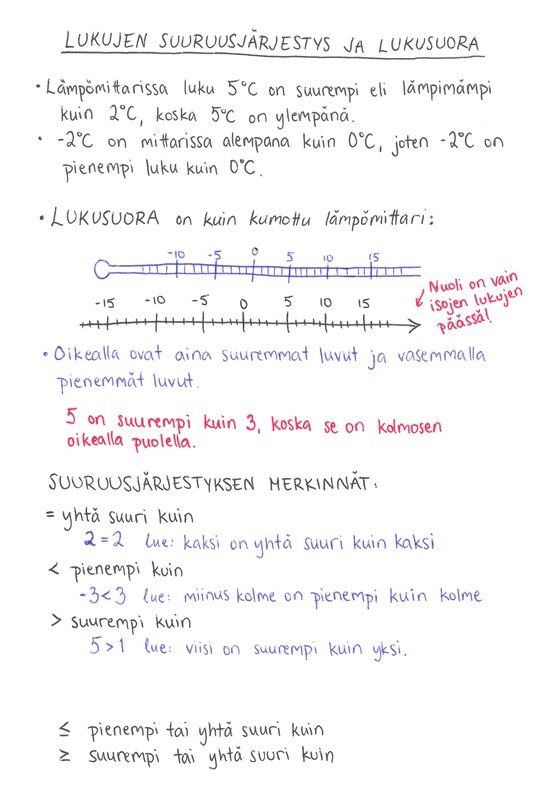 LUKUJEN SUURUUSJÄRJESTYS JA LUKUSUORA
• Lämpömittarissa luku 5°C on suurempi eli lämpimämpi
kuin 2°C, koska 5°C on ylempänä.
• -2°C on mittarissa alempana kuin 0°C, joten -2°C on
pienempi luku kuin 0°C.
• LUKUSUORA on kuin kumottu lämpömittari:
-10 -5 0 5 10 15
-15 -10 -5 0 5 10 15
Nuoli on vain
isojen lukujen
päässä!
• Oikealla ovat aina suuremmat luvut ja vasemmalla
pienemmät luvut.
5 on suurempi kuin 3, koska se on kolmosen
oikealla puolella.
SUURUUSJÄRJESTYKSEN MERKINNÄT:
= yhtä suuri kuin
2 = 2 lue: kaksi on yhtä suuri kuin kaksi
< pienempi kuin
-3 < 3 lue: miinus kolme on pienempi kuin kolme
> suurempi kuin
5 > 1 lue: viisi on suurempi kuin yksi.
≤ pienempi tai yhtä suuri kuin
≥ suurempi tai yhtä suuri kuin